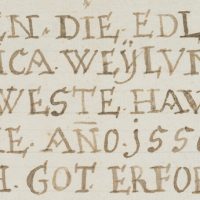 EN · DIE · EDL
ICA · WEŸLVN
WESTE · HAV
E · AÑO · J55
H · GOT · ERFOR